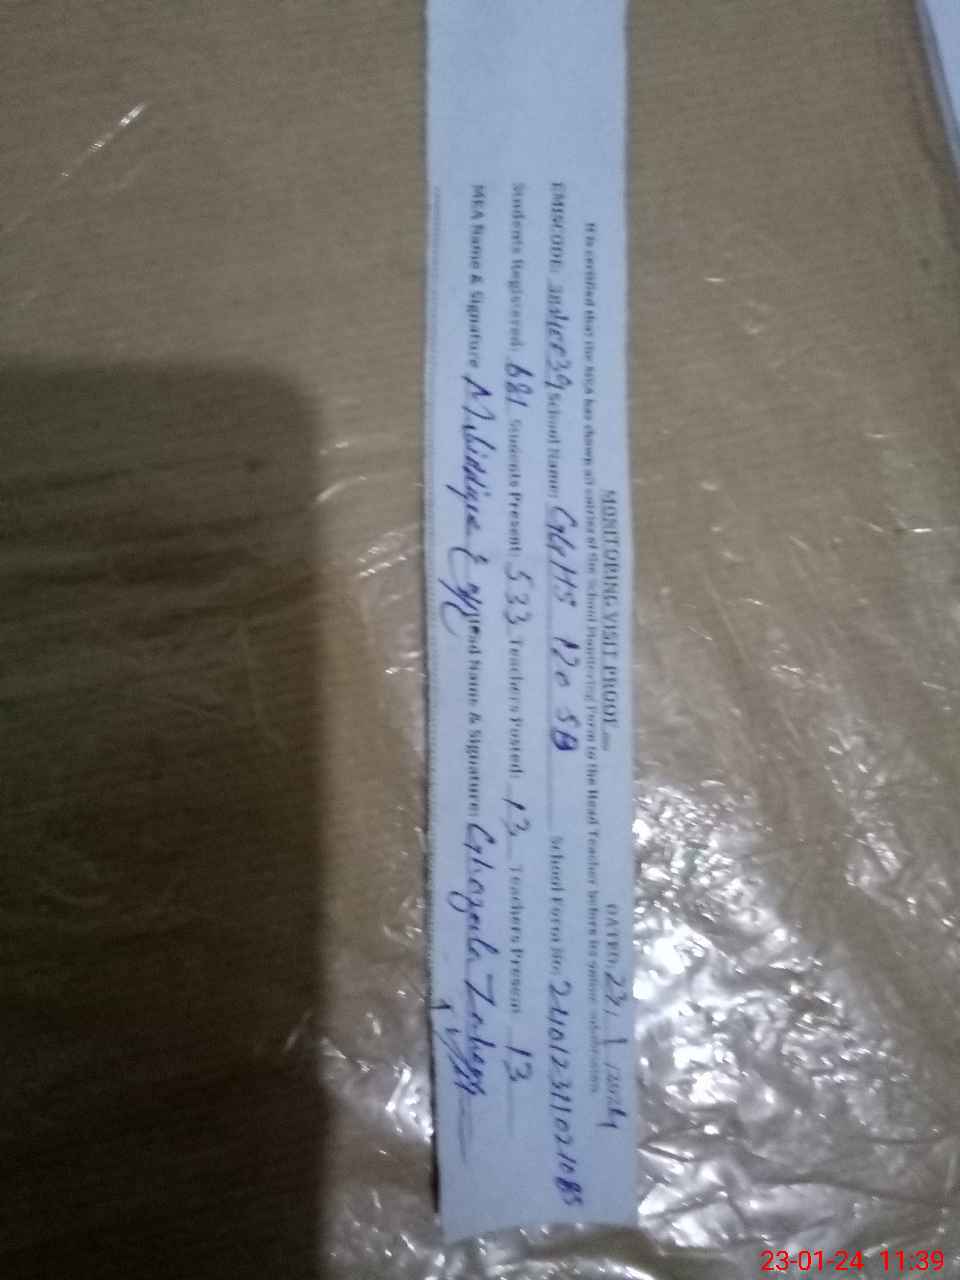 MONITORING VISIT PROOF DATED: 23/ 1 /2024
It is certified that the MEA has shown all entries of the School Monitoring Form to the Head Teacher before its online submission.
EMISCODE: School Name: GGHS 120 SB School Form No: 24012311021085
Students Registered: 681 Students Present: 533 Teachers Posted: 13 Teachers Present 13
MEA Name & Signature M. Siddique Head Name & Signature: Ghazala
23-01-24 11:39